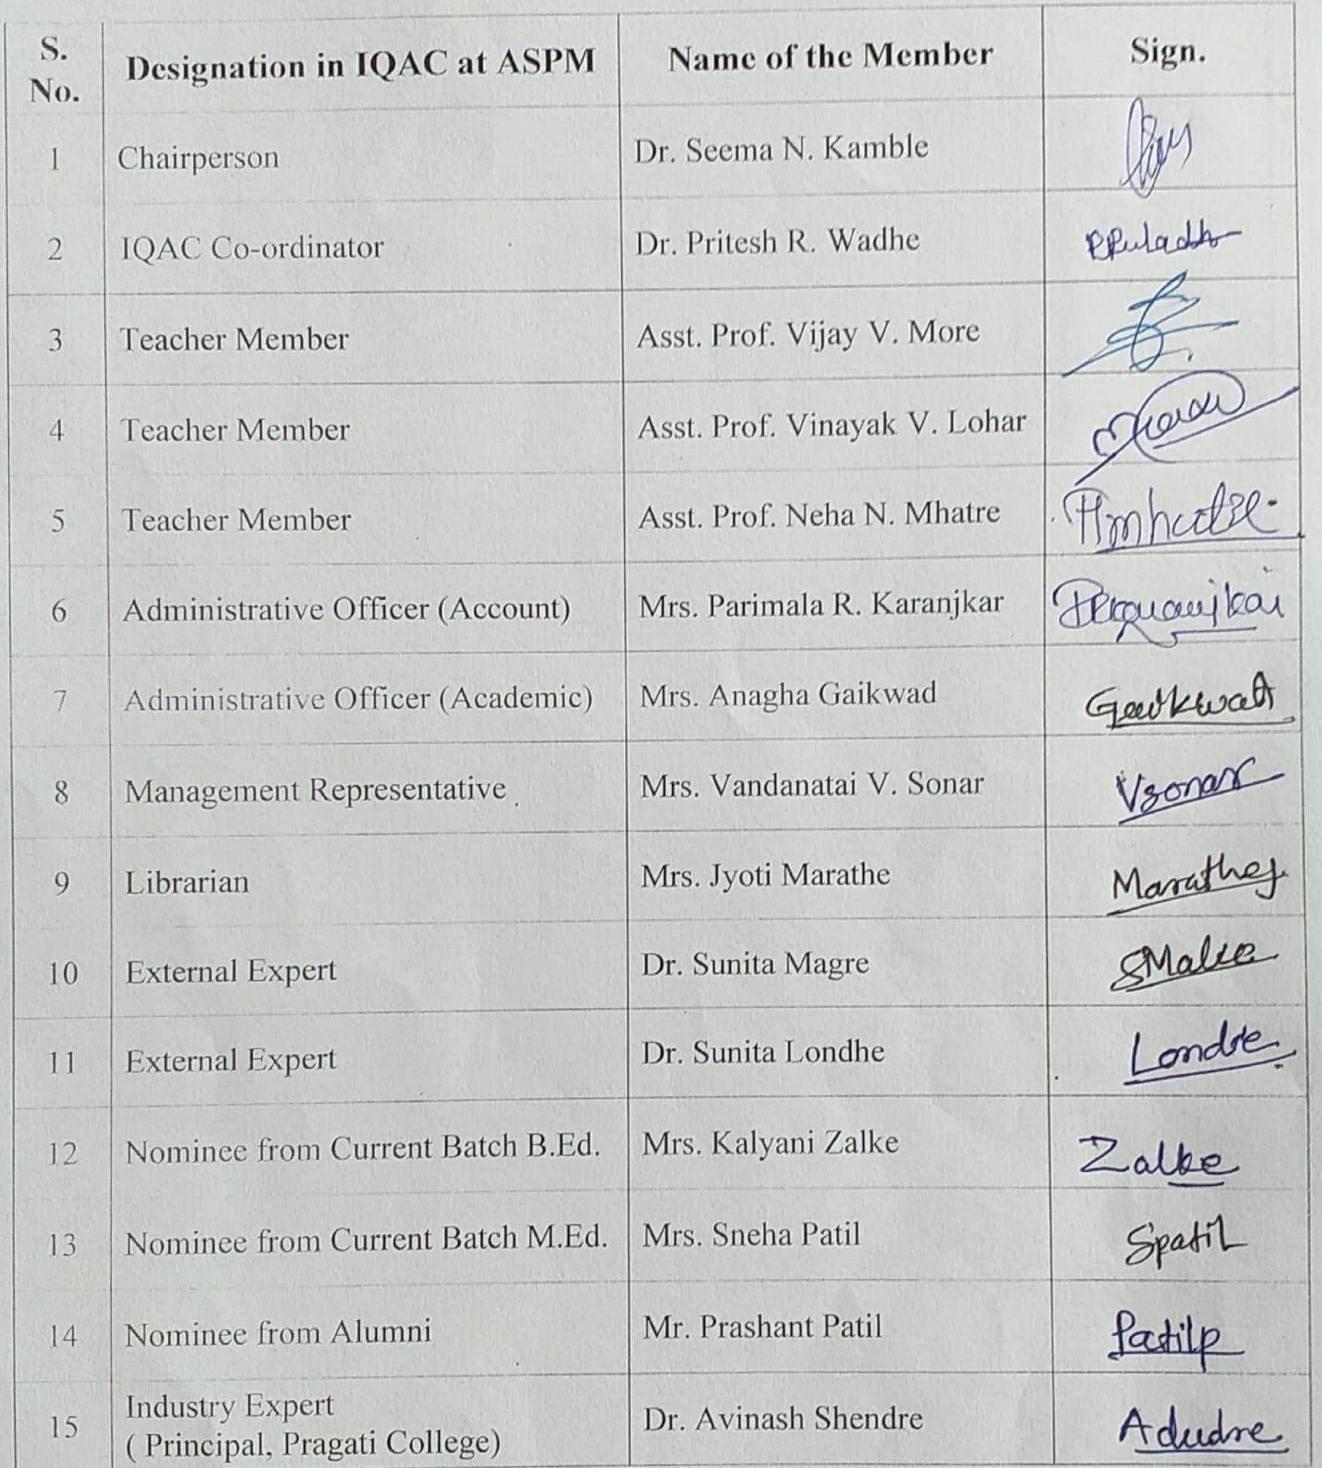 S. No. Designation in IQAC at ASPM Name of the Member Sign.
1 Chairperson Dr. Seema N. Kamble
2 IQAC Co-ordinator Dr. Pritesh R. Wadhe
3 Teacher Member Asst. Prof. Vijay V. More
4 Teacher Member Asst. Prof. Vinayak V. Lohar
5 Teacher Member Asst. Prof. Neha N. Mhatre
6 Administrative Officer (Account) Mrs. Parimala R. Karanjkar
7 Administrative Officer (Academic) Mrs. Anagha Gaikwad
8 Management Representative Mrs. Vandanatai V. Sonar Vsonar
9 Librarian Mrs. Jyoti Marathe Marathej
10 External Expert Dr. Sunita Magre
11 External Expert Dr. Sunita Londhe
12 Nominee from Current Batch B.Ed. Mrs. Kalyani Zalke Zalke
13 Nominee from Current Batch M.Ed. Mrs. Sneha Patil Spatil
14 Nominee from Alumni Mr. Prashant Patil Patilp
15 Industry Expert Dr. Avinash Shendre
( Principal, Pragati College)